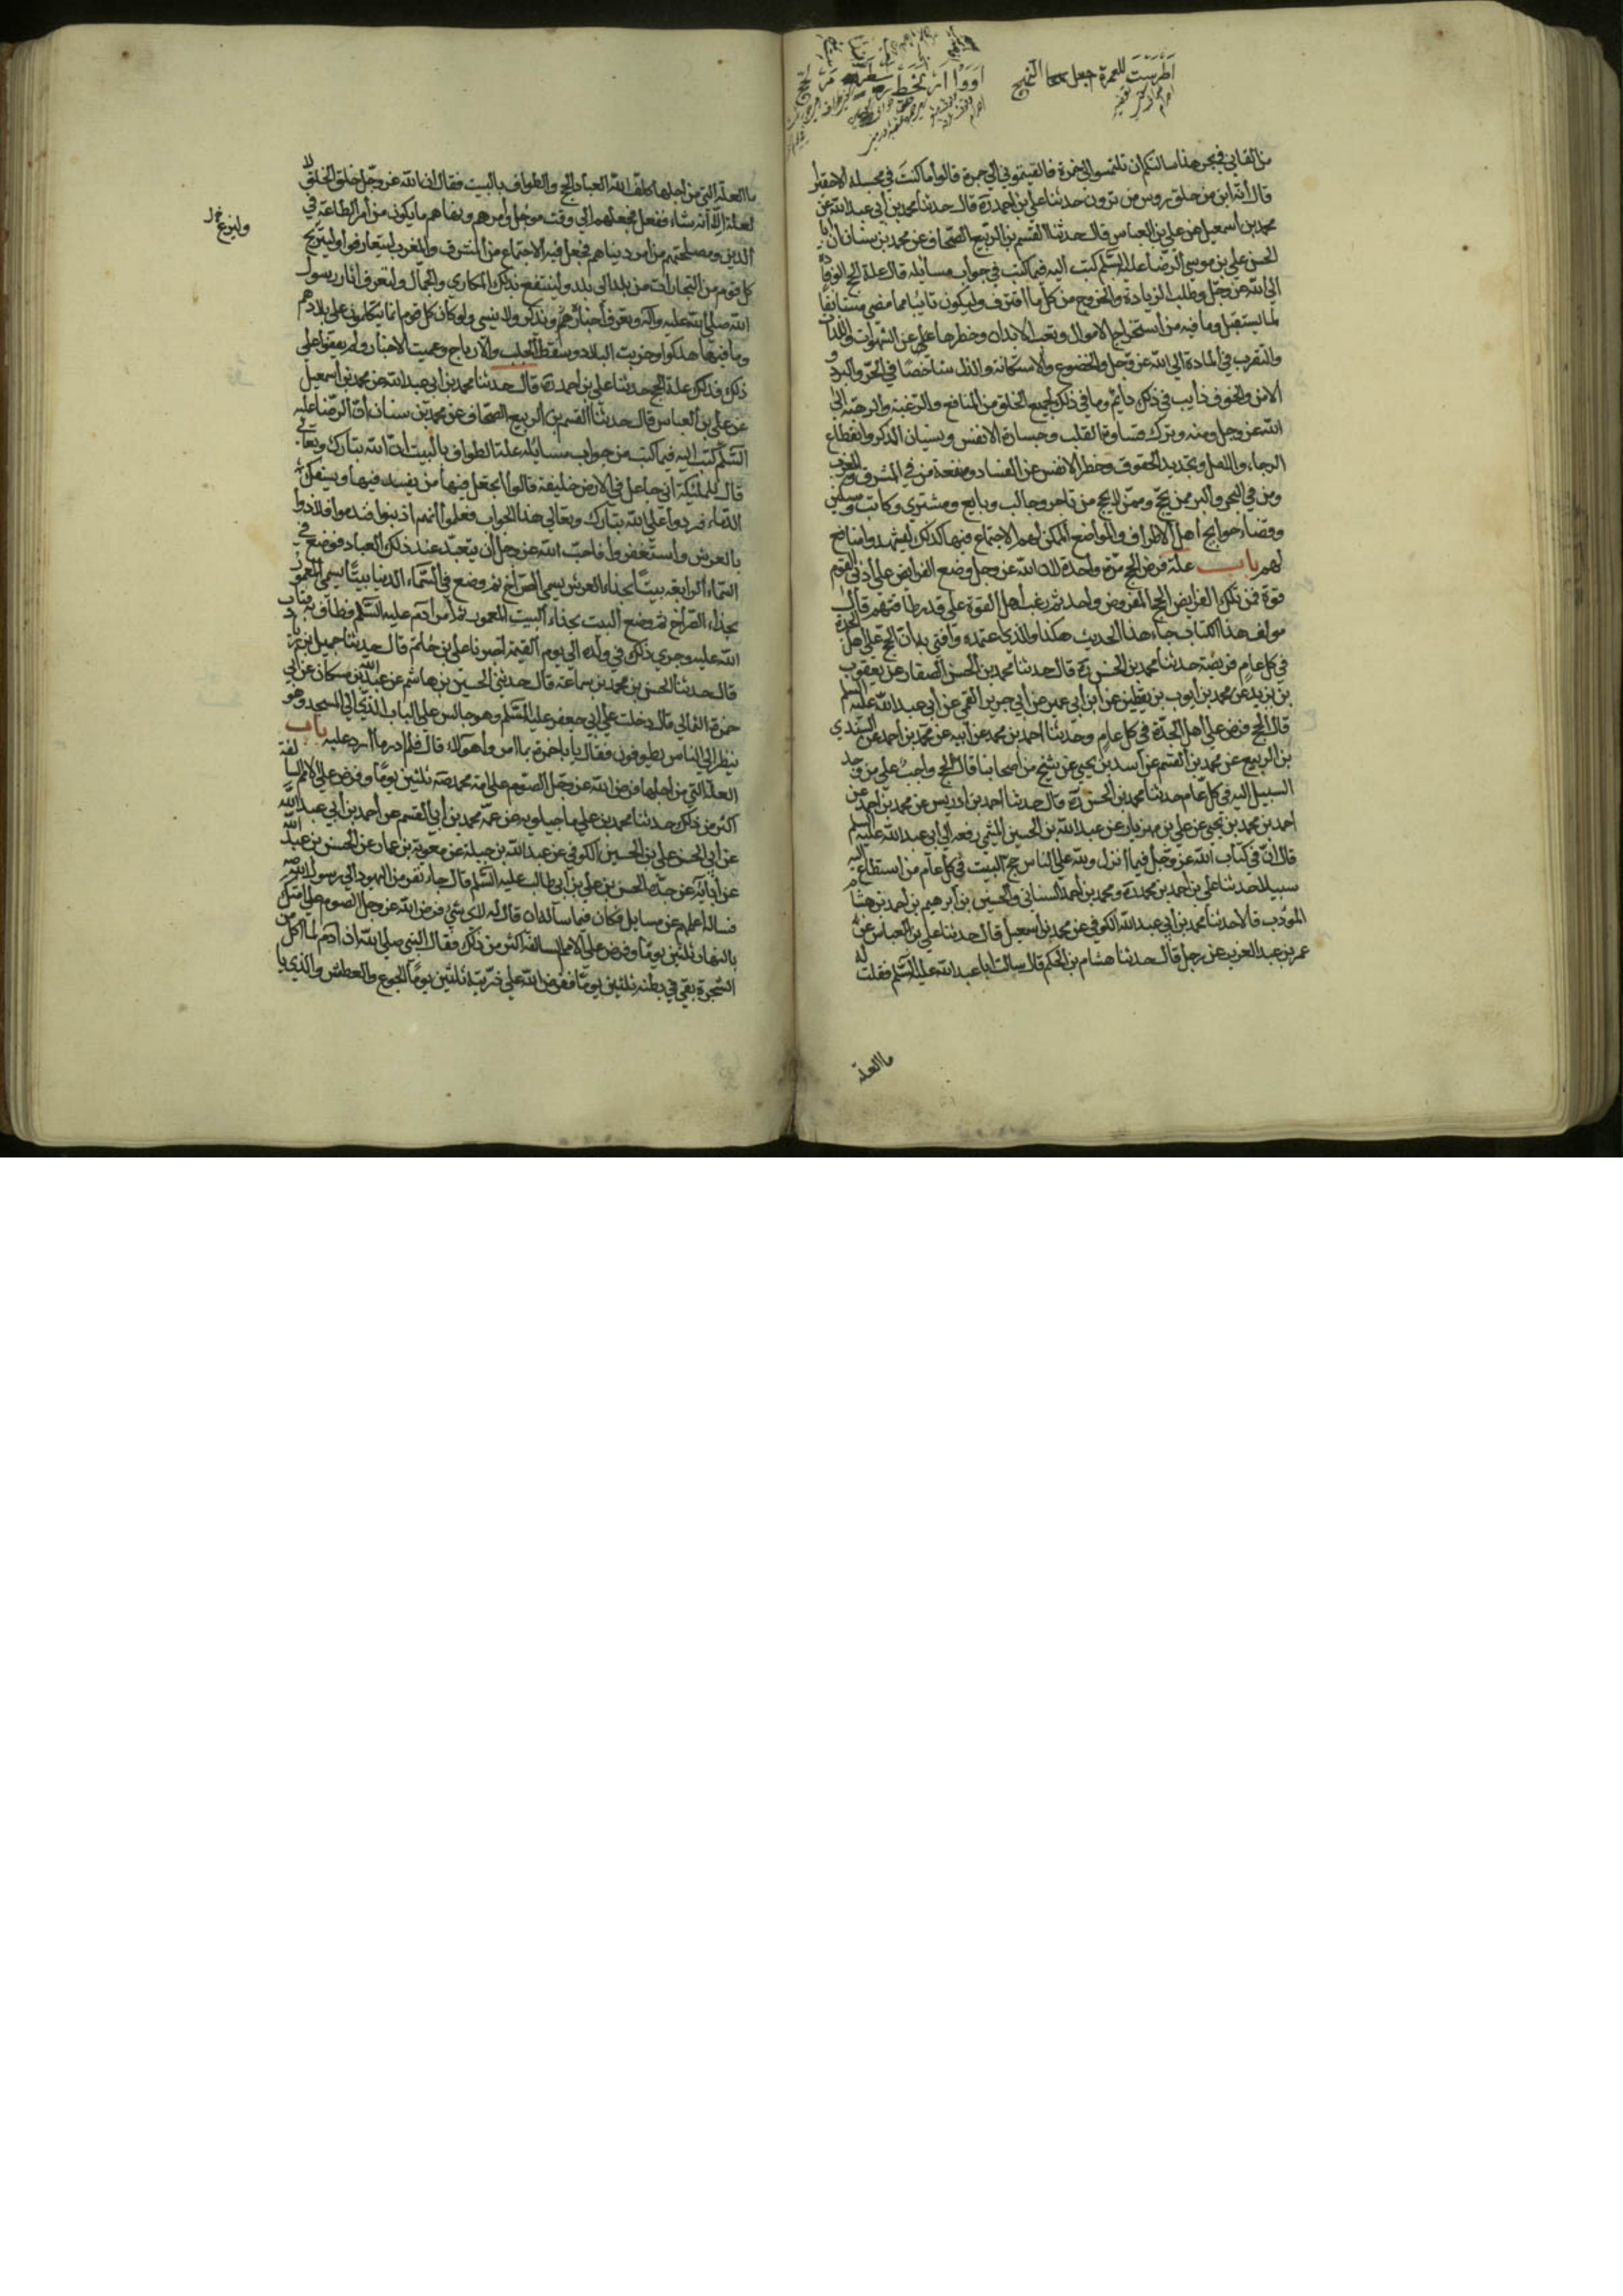 من القاني في بحر هذا سالتكم ان تلتمسوا لي خمرة فالقيتموني الي جمرة قالوا ما كنت في مجلسه الا حقيرا
قال انه ابن من حلق رؤس من ترون حدثنا علي بن احمد ره قال حدثنا محمد بن ابي عبد الله عن
محمد بن اسمعيل عن علي بن العباس قال حدثنا القسم بن الربيع الصحاف عن محمد بن سنان ان ابا
الحسن علي بن موسي الرضا عليه السلم كتب اليه فيما كتب في جواب مسايله قال علة الحج الوفادة
الي الله عز وجل وطلب الزيادة والخروج من كل ما اقترف وليكون تائبا مما مضي مستانفا
لما يستقبل وما فيه من استخراج الاموال وتعب الابدان وحظرها عن الشهوات واللذات
والتقرب في العبادة الي الله عز وجل والخضوع والاستكانة والذل شاخصا في الحر والبرد و
الامن والخوف دايب في ذلك دايم وما في ذلك لجميع الخلق من المنافع والرغبة والرهبة الي
الله عز وجل ومنه وترك قساوة القلب وخسارة الانفس ونسيان الذكر وانقطاع
الرجاء والامل وتجديد الحقوق وحظر الانفس عن الفساد ومنفعة من في المشرق والمغرب
ومن في البحر والبر ممن يحج وممن لا يحج من تاجر وجالب وبايع ومشتري وكاتب ومسكين
وقضاء حوايج اهل الاطراف والمواضع الممكن لهم الاجتماع فيها كذلك ليشهدوا منافع
لهم باب علة فرض الحج مرة واحدة لان الله عز وجل وضع الفرائض علي ادني القوم
قوة فمن تلك الفرائض الحج المفروض واحد ثم رغب اهل القوة علي قدر طاقتهم قال
مولف هذا الكتاب جاء هذا الحديث هكذا والذي اعتمده وافتي به ان الحج علي اهل الجدة
في كل عام فريضة حدثنا محمد بن الحسن ره قال حدثنا محمد بن الحسن الصفار عن يعقوب
بن يزيد عن محمد بن ابي عمير عن ابي جرير القمي عن ابي عبد الله عليه السلم
قال الحج فرض علي اهل الجدة في كل عام وحدثنا احمد بن محمد عن ابيه عن محمد بن احمد عن السندي
بن الربيع عن محمد بن القسم عن اسد بن يحيي عن شيخ من اصحابنا قال الحج واجب علي من وجد
السبيل اليه في كل عام حدثنا محمد بن الحسن ره قال حدثنا احمد بن ادريس عن محمد بن احمد عن
احمد بن محمد بن يحيي عن علي بن مهزيار عن عبد الله بن الحسين الميثمي رفعه الي ابي عبد الله عليه السلم
قال ان في كتاب الله عز وجل فيما انزل ولله علي الناس حج البيت في كل عام من استطاع اليه
سبيلا حدثنا علي بن احمد بن محمد ره ومحمد بن احمد السناني والحسين بن ابرهيم بن احمد بن هشام
المؤدب قالا حدثنا محمد بن ابي عبد الله الكوفي عن محمد بن اسمعيل قال حدثنا علي بن العباس عن
عمر بن عبد العزيز عن رجل قال حدثنا هشام بن الحكم قال سالت ابا عبد الله عليه السلم فقلت له
ما العلة
ما العلة التي من اجلها كلف الله العباد الحج والطواف بالبيت فقال ان الله عز وجل خلق الخلق لا
لعلة الا انه شاء ففعل فجعلهم الي وقت مؤجل وامرهم ونهاهم ما يكون من امر الطاعة في
الدين ومصلحتهم من امر دنياهم فجعل فيه الاجتماع من المشرق والمغرب ليتعارفوا وليتربح
كل قوم من التجارات من بلد الي بلد ولينتفع بذلك المكاري والجمال ولتعرف اثار رسول
الله صلي الله عليه واله وتعرف اخباره ويذكر ولا ينسي ولو كان كل قوم انما يتكلمون علي بلادهم
وما فيها هلكوا وخربت البلاد وسقط الجلب والارباح وعميت الاخبار ولم يقفوا علي
ذلك فذلك علة الحج حدثنا علي بن احمد ره قال حدثنا محمد بن ابي عبد الله عن محمد بن اسمعيل
عن علي بن العباس قال حدثنا القسم بن الربيع الصحاف عن محمد بن سنان ان الرضا عليه
السلم كتب اليه فيما كتب من جواب مسايله علة الطواف بالبيت ان الله تبارك وتعالي
قال للملئكة اني جاعل في الارض خليفة قالوا اتجعل فيها من يفسد فيها ويسفك
الدماء فردوا علي الله تبارك وتعالي هذا الجواب فعلموا انهم اذنبوا فندموا فلاذوا
بالعرش واستغفروا فاحب الله عز وجل ان يتعبد عند ذلك العباد فوضع في
السماء الرابعة بيتا بحذاء العرش يسمي الضراح ثم وضع في السماء الدنيا بيتا يسمي المعمور
بحذاء الضراح ثم وضع البيت بحذاء البيت المعمور ثم امر ادم عليه السلم فطاف به فتاب
الله عليه وجري ذلك في ولده الي يوم القيمة اخبرنا علي بن حاتم قال حدثنا حميل بن زياد
قال حدثنا الحسن بن محمد بن سماعة قال حدثني الحسين بن هاشم عن عبد الله بن مسكان عن ابي
حمزة الثمالي قال دخلت علي ابي جعفر عليه السلم وهو جالس علي الباب الذي الي المسجد وهو
ينظر الي الناس يطوفون فقال يا با حمزة بما امر هؤلاء قال فلم ادر ما ارد عليه باب
العلة التي من اجلها فرض الله عز وجل الصوم علي امة محمد صه ثلثين يوما وفرض علي الامم السالفة
اكثر من ذلك حدثنا محمد بن علي ماجيلويه عن عمه محمد بن ابي القسم عن احمد بن ابي عبد الله
عن ابي الحسن علي بن الحسين الكوفي عن عبد الله بن جبلة عن معوية بن عمار عن الحسن بن عبد الله
عن ابائه عن جده الحسن بن علي بن ابي طالب عليه السلم قال جاء نفر من اليهود الي رسول الله صه
فساله اعلمهم عن مسايل فكان فيما ساله ان قال له لاي شئ فرض الله عز وجل الصوم علي امتك
بالنهار ثلثين يوما وفرض علي الامم السالفة اكثر من ذلك فقال النبي صلي الله ان ادم لما اكل من
الشجرة بقي في بطنه ثلثين يوما ففرض الله علي ذريته ثلثين يوما الجوع والعطش والذي يا